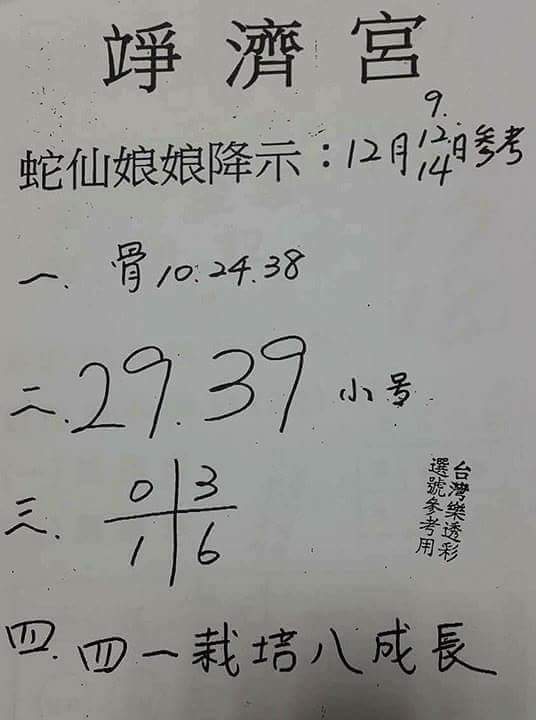 竫濟宮
蛇仙娘娘降示：12月9.12 14日參考
一. 骨10.24.38
二. 29.39 小号
三. 0 3
1 6
台灣樂透彩
選號參考用
四. 四一栽培八成長